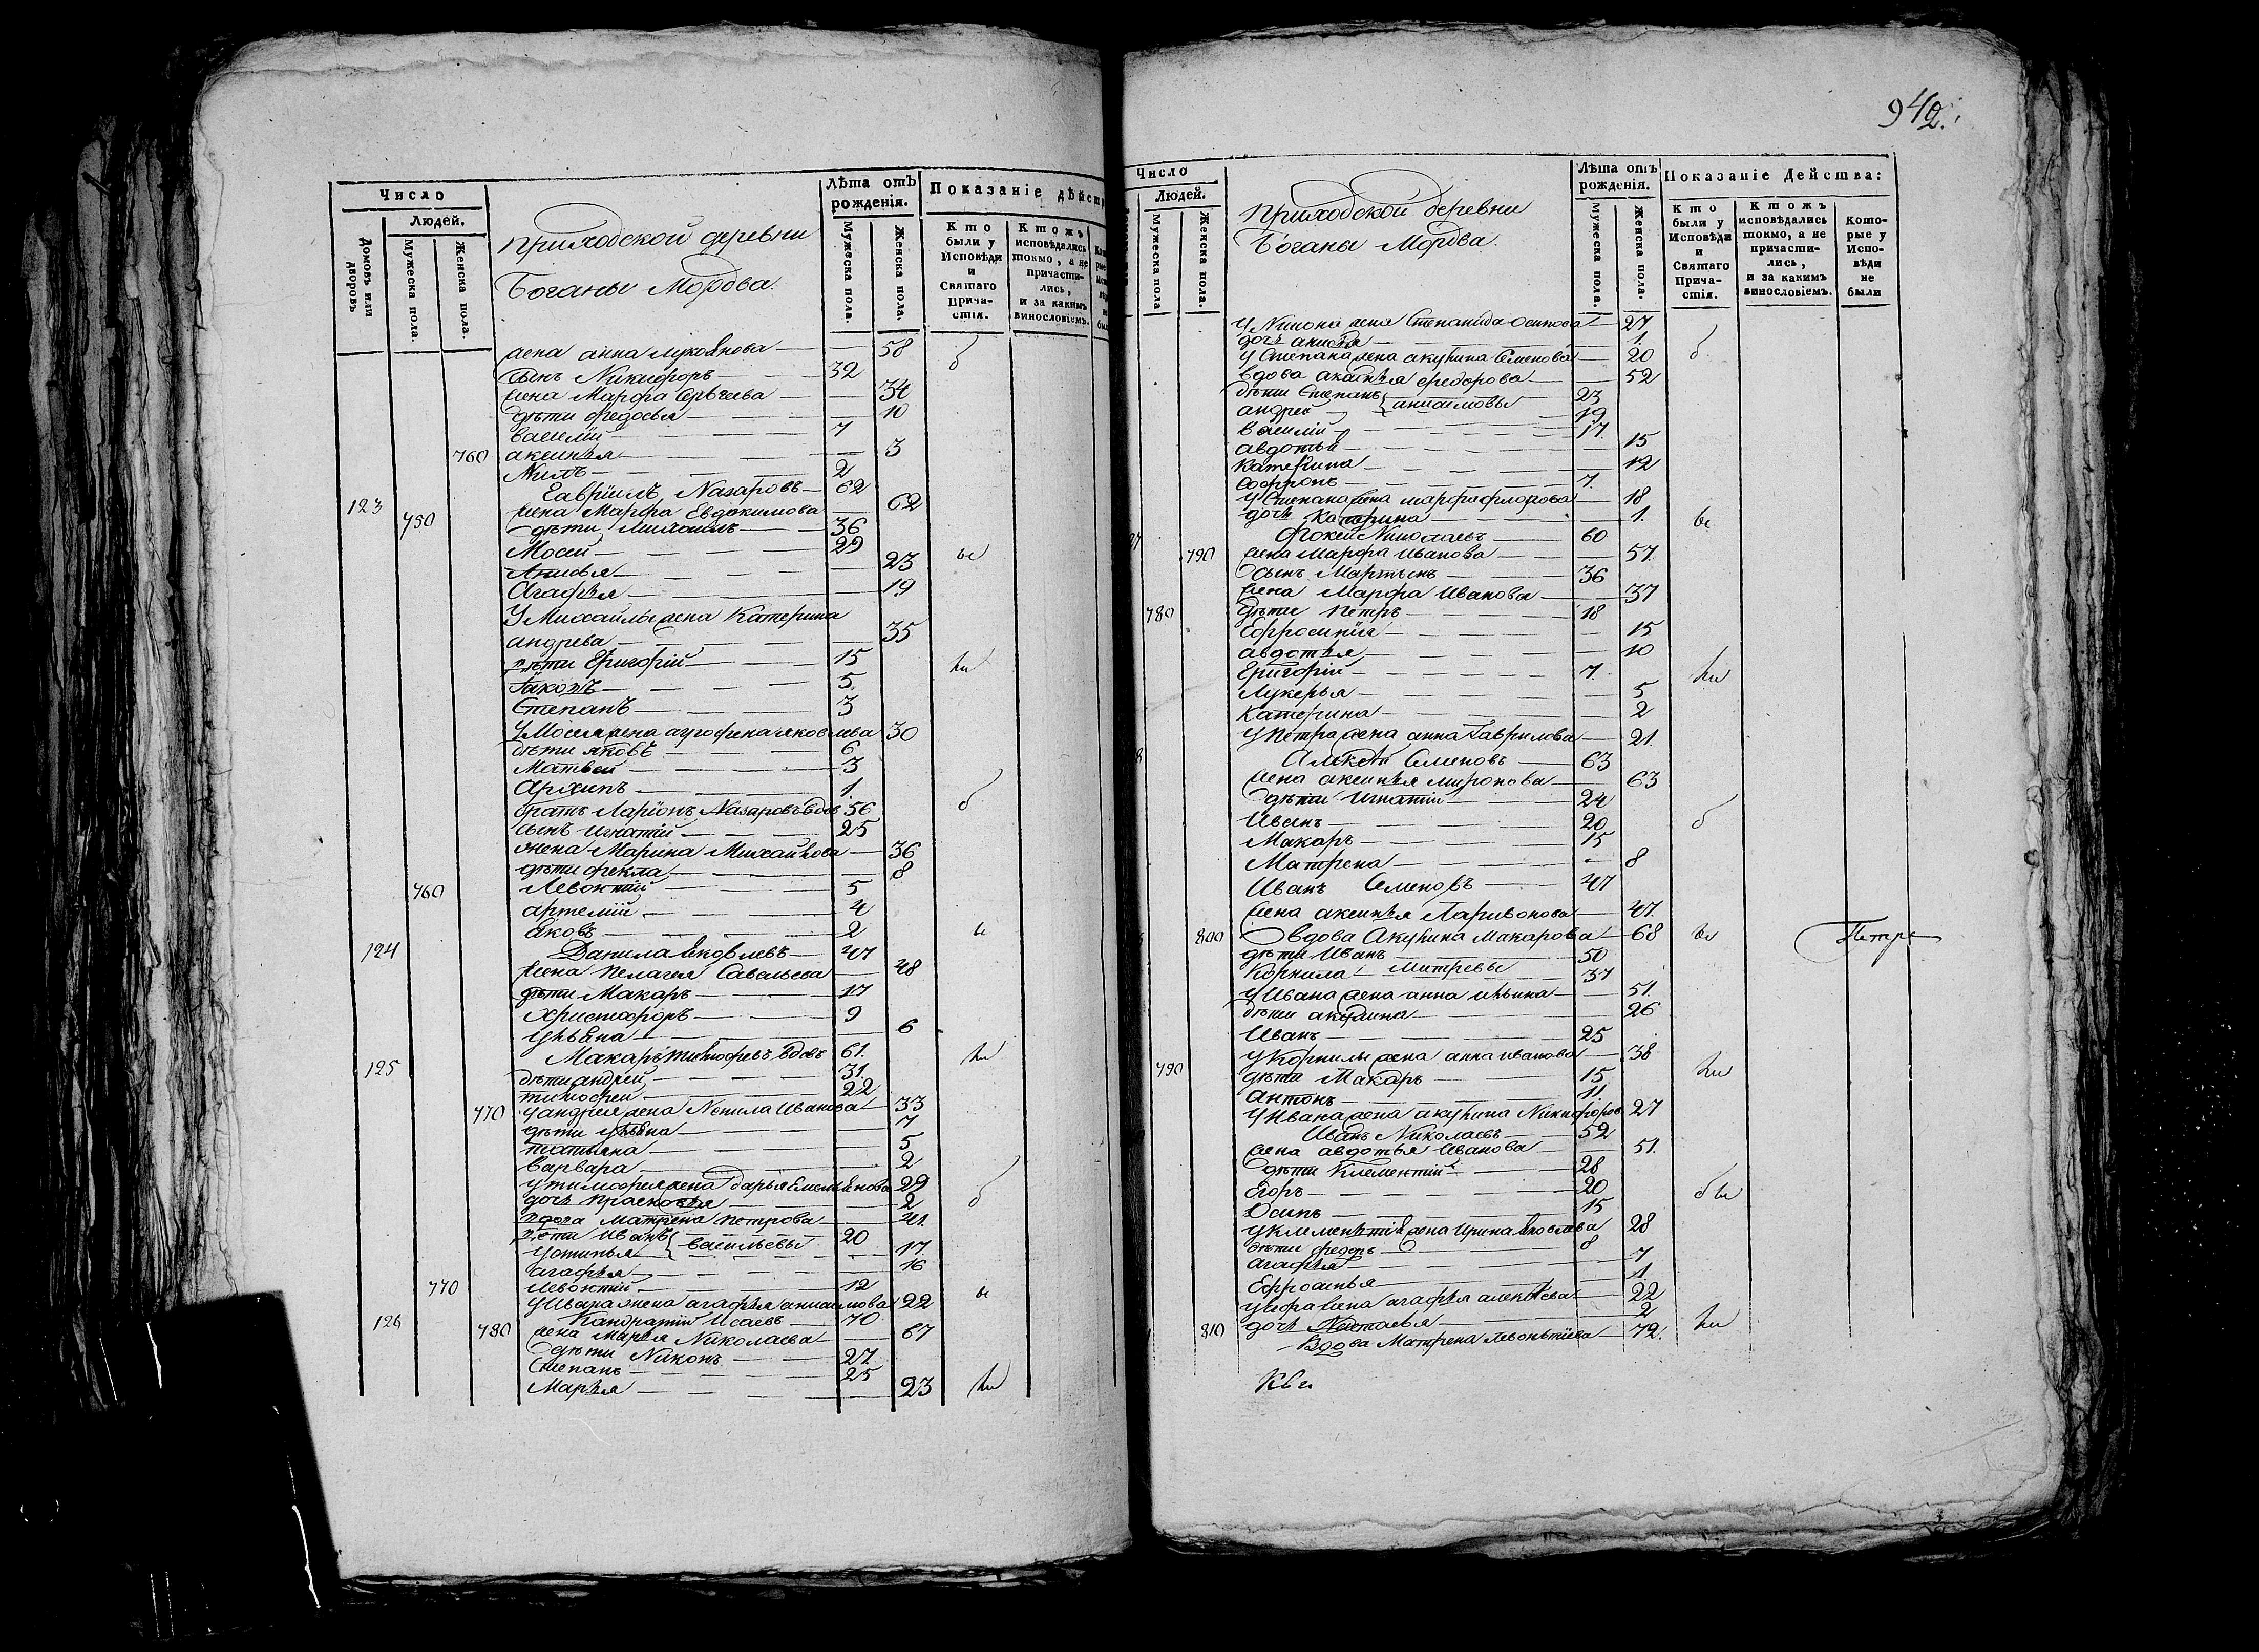 Число
Людей.
Домовъ или дворовъ
Мужеска пола.
Женска пола.
приходской деревни
Боганы Мордва.
Лѣта отъ рожденія.
Мужеска пола.
Женска пола.
Показаніе дѣйст
Кто были у Исповѣди и Святаго Прича-стія.
Ктожъ исповѣдались токмо, а не причасти-лись, и за какимъ винословіемъ.
жена анна лукоянова 58
сынъ Никифоръ 32
жена Марфа Сергѣева 34
дѣти федосья 10
василій 7
760 аксинья 3
Нилъ 2
123 Гаврїилъ Назаровъ 62
жена Марфа Евдокимова 62
750 дѣти Михаилъ 36
Мосей 29
Анисья 23
Агафья 19
У Михайлы жена Катерина
андрева 35
дѣти Григорій 15
5
Степанъ 3
У Мосея жена агрофена яковлева 30
дѣти яковъ 6
Матвей 3
Архипъ 1.
братъ Ларіонъ Назаровъ вдов 56
сынъ игнатій 25
жена Марина Михайлова 36
дѣти фекла 8
760 Левонтій 5
артемій 4
яковъ 2
124 Данила яковлевъ 47
жена пелагея Савельева 48
дѣти Макаръ 17
христофоръ 9
ульяна 6
125 Макаръ тимофеевъ вдовъ 61.
дѣти андрей 31.
тимофей 22
770 у андрея жена Ненила Иванова 33
дѣти ульяна 7
татьяна 5
варвара 2
у тимофея жена дарья Емельянова 29
дочь прасковья 2
вдова матрена петрова 41.
дѣти Иванъ } васильевы 20
устинья 17.
агафья 16
770 левонтій 12
у Ивана жена агафья анисимова 22
126 Кандратій Исаевъ 70
780 жена марья Николаева 67
дѣти Никонъ 27
Степанъ 25
Марья 23
942.
Число
Людей.
Мужеска пола
Женска пола.
приходской деревни
Боганы Мордва.
Лѣта отъ рожденія.
Мужеска пола.
Женска пола.
Показаніе Действа:
Кто были у Исповѣди и Святаго Прича-стія.
Ктожъ исповѣдались токмо, а не причасти-лись, и за какимъ винословіемъ.
Кото-рые у Испо-вѣди не были
У Никона жена Степанида Осипова 27
дочь анисья 1.
У Степана жена акулина Семенова 20
вдова аксинья федорова 52
дѣти Степанъ } анисимовы 23
андрей 19
василій 17.
авдотья 15
катерина 12
Софронъ 7.
У Степана жена марфа флорова 18
дочь катерина 1.
Фокей Николаевъ 60
790 жена Марфа Иванова 57.
сынъ Мартынъ 36
жена Марфа Иванова 37
780 дѣти Петръ 18
Ефросинія 15
авдотья 10
Григорій 7.
Лукерья 5
Катерина 2
У петра жена анна Гаврилова 21.
Алексѣй Семеновъ 63
жена аксинья миронова 63
дѣти Игнатій 24
Иванъ 20
Макаръ 15
Матрена 8
Иванъ Семеновъ 47
жена аксинья Ларивонова 47.
800 вдова Акулина Макарова 68
дѣти Иванъ 50
Корнила Митревы 37
у Ивана жена анна ильина 51.
дѣти акулина 26
Иванъ 25
у Корнилы жена анна иванова 38
790 дѣти Макаръ 15
Антонъ 11.
у Ивана жена акулина Никифоров 27
Иванъ Николаевъ 52
жена авдотья Иванова 51.
дѣти Клементій 28
Егоръ 20
Осипъ 15
у клементія жена Ирина яковлева 28
дѣти федоръ 8
агафья 7
Ефросинья 1.
у егора жена агафья алексѣева 22
810 дочь Настасья 2
Вдова Матрена левонтіева 72.